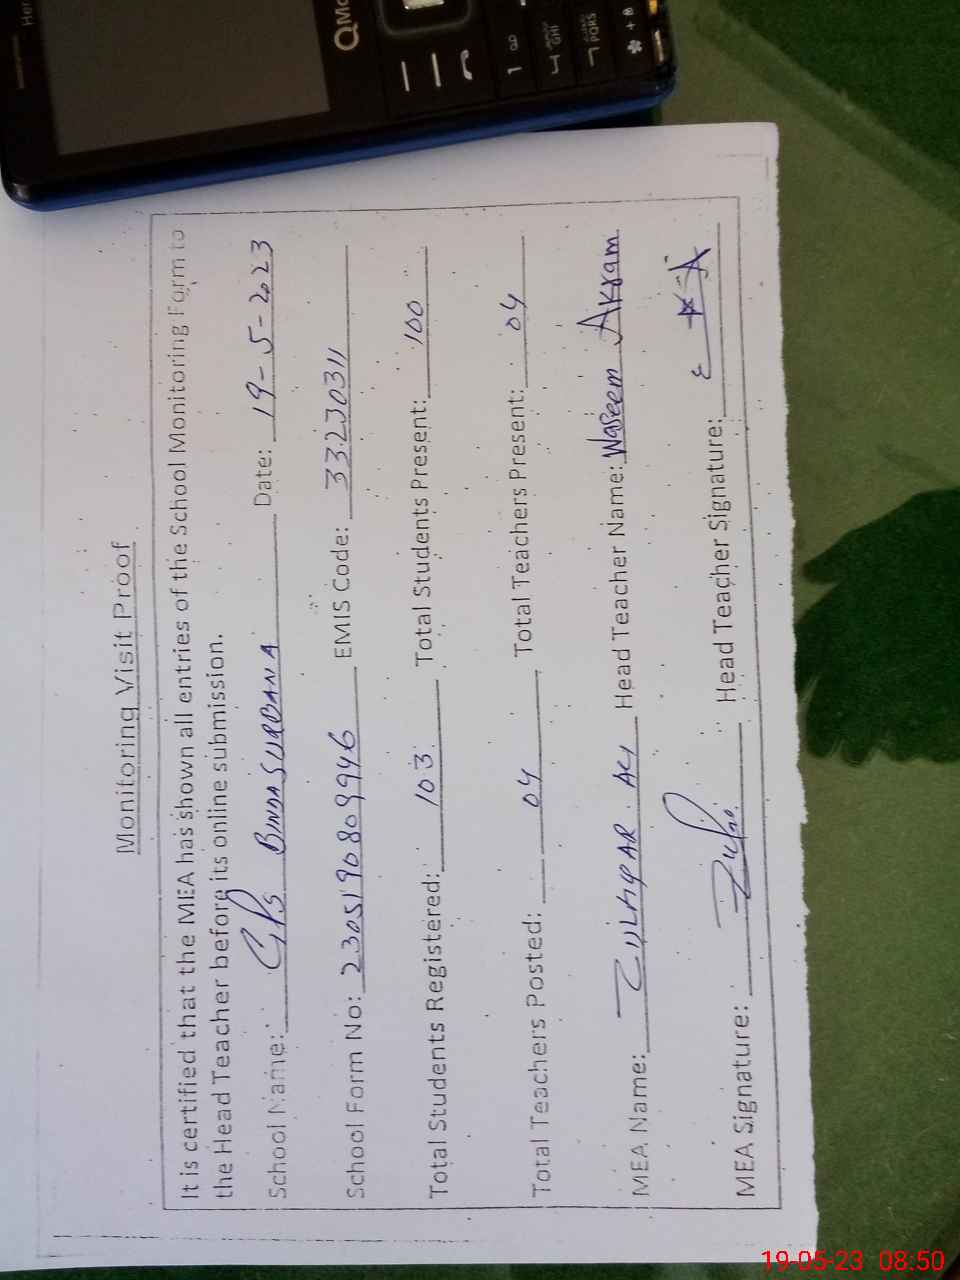 Monitoring Visit Proof
It is certified that the MEA has shown all entries of the School Monitoring Form to
the Head Teacher before its online submission.
School Name: GPS BINDA SURBANA Date: 19-5-2023
School Form No: 2305190809946 EMIS Code: 33230311
Total Students Registered: 103 Total Students Present: 100
Total Teachers Posted: 04 Total Teachers Present: 04
MEA Name: ZULFIQAR ALI Head Teacher Name: Waseem Akram
MEA Signature: Head Teacher Signature:
QMo
1
4 GHI
7 PQRS
* +
19-05-23 08:50